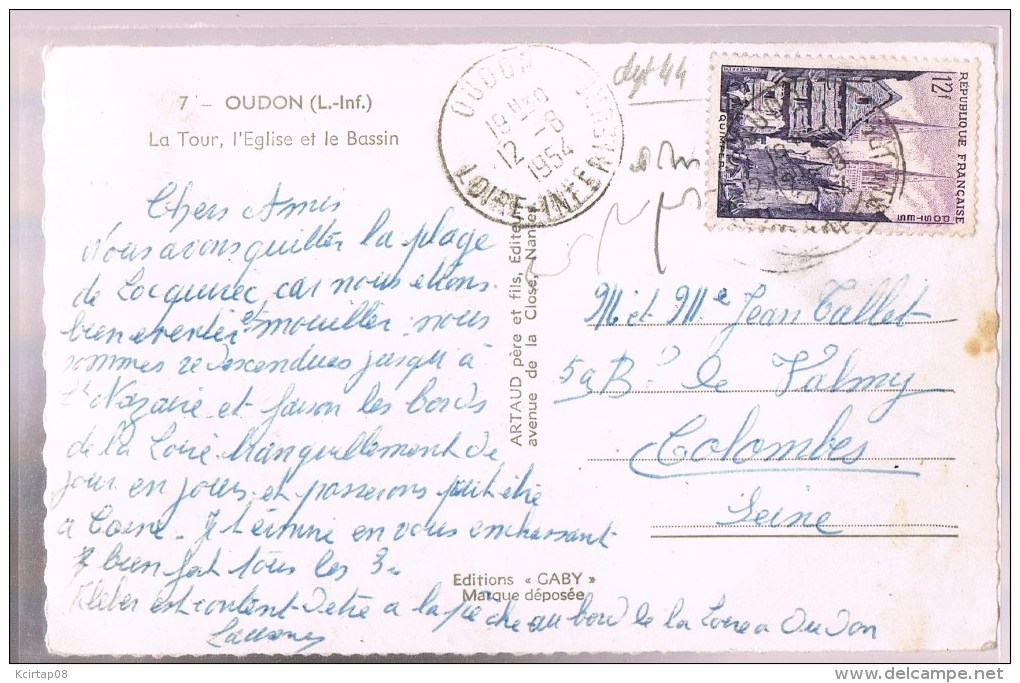 7 - OUDON (L.-Inf.)
La Tour, l'Eglise et le Bassin
OUDON
18 H-8
12 -8
1954
LOIRE-INFERIEURE
dpt 44
12f
RÉPUBLIQUE FRANÇAISE
POSTES
QUIMPER
Chers Amis
Nous avons quitter la plage
de Locquirec, car nous etions
bien eventer et mouiller; nous
sommes redescendues jusqu'à
St Nazaire et faison les bords
de la Loire tranquillement de
jour en jours, et passerons peut etre
a Cosne. Je termine en vous embrassant
bien fort tous les 3.
Kleber est content d'etre a la pêche au bord de la Loire a Oudon
ARTAUD père et fils, Editeurs
avenue de la Close, Nantes
M. et Me Jean Tallet
59 Bd de Valmy
Colombes
Seine
Editions « GABY »
Marque déposée
Kcirtap08
delcampe.net